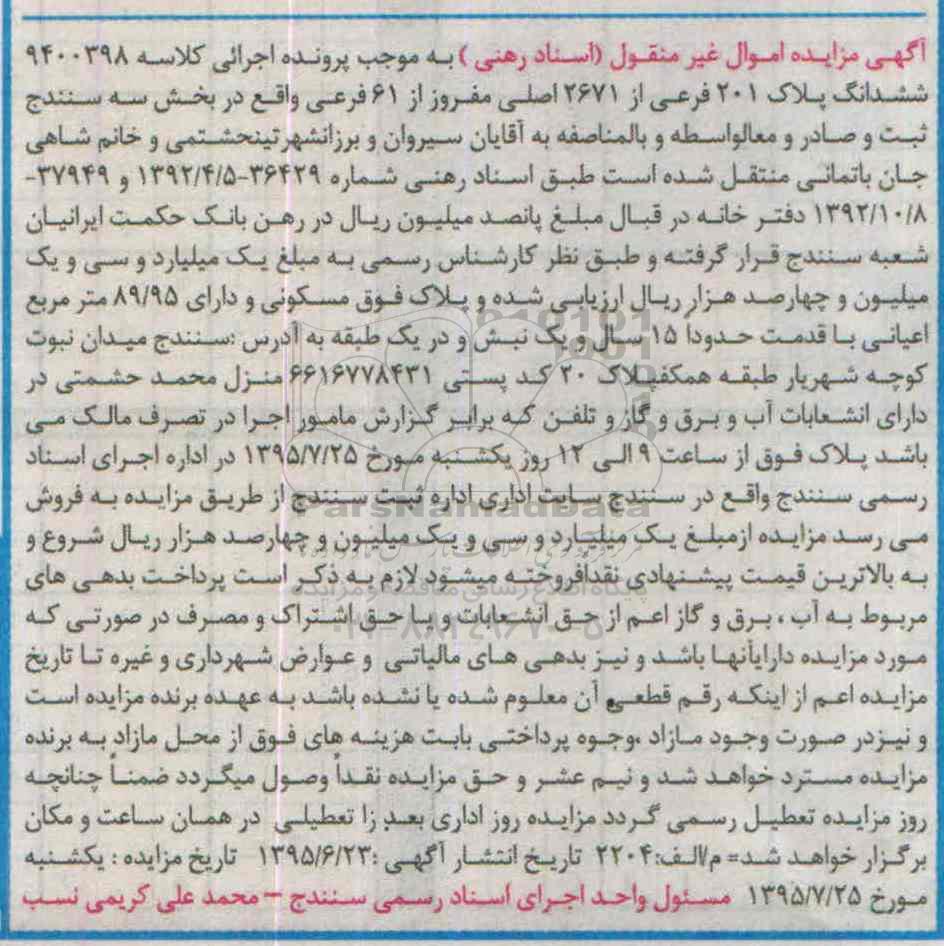 آگهی مزایده اموال غیر منقول (اسناد رهنی) به موجب پرونده اجرائی کلاسه ۹۴۰۰۳۹۸
ششدانگ پلاک ۲۰۱ فرعی از ۲۶۷۱ اصلی مفروز از ۶۱ فرعی واقع در بخش سه سنندج
ثبت و صادر و معالواسطه و بالمناصفه به آقایان سیروان و برزانشهرتینحشتمی و خانم شاهی
جان باتمانی منتقل شده است طبق اسناد رهنی شماره ۳۶۴۲۹-۱۳۹۲/۴/۵ و ۳۷۹۴۹-
۱۳۹۲/۱۰/۸ دفتر خانه در قبال مبلغ پانصد میلیون ریال در رهن بانک حکمت ایرانیان
شعبه سنندج قرار گرفته و طبق نظر کارشناس رسمی به مبلغ یک میلیارد و سی و یک
میلیون و چهارصد هزار ریال ارزیابی شده و پلاک فوق مسکونی و دارای ۸۹/۹۵ متر مربع
اعیانی با قدمت حدوداً ۱۵ سال و یک نبش و در یک طبقه به آدرس :سنندج میدان نبوت
کوچه شهریار طبقه همکفپلاک ۲۰ کد پستی ۶۶۱۶۷۷۸۴۳۱ منزل محمد حشمتی در
دارای انشعابات آب و برق و گاز و تلفن که برابر گزارش مامور اجرا در تصرف مالک می
باشد پلاک فوق از ساعت ۹ الی ۱۲ روز یکشنبه مورخ ۱۳۹۵/۷/۲۵ در اداره اجرای اسناد
رسمی سنندج واقع در سنندج سایت اداری اداره ثبت سنندج از طریق مزایده به فروش
می رسد مزایده ازمبلغ یک میلیارد و سی و یک میلیون و چهارصد هزار ریال شروع و
به بالاترین قیمت پیشنهادی نقدافروخته میشود لازم به ذکر است پرداخت بدهی های
مربوط به آب ، برق و گاز اعم از حق انشعابات و یا حق اشتراک و مصرف در صورتی که
مورد مزایده دارایآنها باشد و نیز بدهی های مالیاتی و عوارض شهرداری و غیره تا تاریخ
مزایده اعم از اینکه رقم قطعی آن معلوم شده یا نشده باشد به عهده برنده مزایده است
و نیزدر صورت وجود مازاد ،وجوه پرداختی بابت هزینه های فوق از محل مازاد به برنده
مزایده مسترد خواهد شد و نیم عشر و حق مزایده نقداً وصول میگردد ضمناً چنانچه
روز مزایده تعطیل رسمی گردد مزایده روز اداری بعد زا تعطیلی در همان ساعت و مکان
برگزار خواهد شد= م/الف:۲۲۰۴ تاریخ انتشار آگهی :۱۳۹۵/۶/۲۳ تاریخ مزایده : یکشنبه
مورخ ۱۳۹۵/۷/۲۵ مسئول واحد اجرای اسناد رسمی سنندج – محمد علی کریمی نسب
ParsNamadData